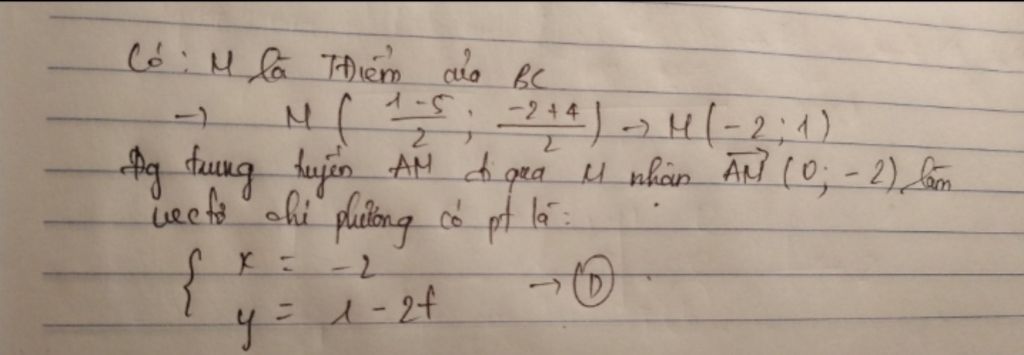 Có : M là Tđiểm của BC
→ M ( \frac{1-5}{2} ; \frac{-2+4}{2} ) → M ( -2 ; 1 )
Đg trung tuyến AM đi qua M nhận \overrightarrow{AM} ( 0 ; -2 ) làm
vectơ chỉ phương có pt là :
{ x = -2
y = 1 - 2t → D